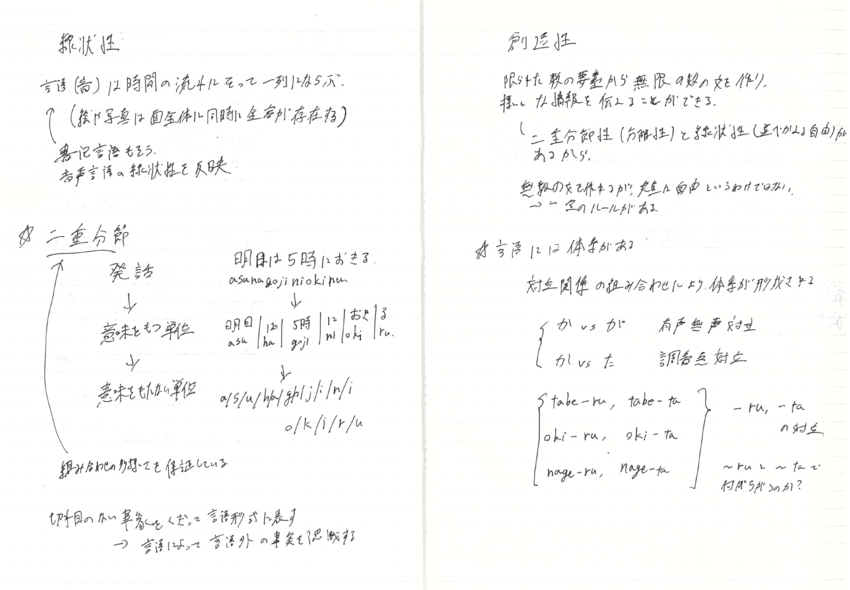 線状性
言語(音)は時間の流れにそって一列にならぶ.
(絵や写真は面全体に同時に全容が存在する)
書記言語もそう.
音声言語の線状性を反映
☆ 二重分節
発話
明日は5時におきる.
asuhagojiniokiru.
↓ ↓
意味をもつ単位
明日|は|5時|に|おき|る
asu|ha|goji|ni|oki|ru.
↓ ↓
意味をもたない単位
a/s/u/h/a/g/o/j/i/n/i
o/k/i/r/u
組み合わせの多様性を保証している
切れ目のない事象をくぎって言語形式に表す
→ 言語によって言語外の事実を認識する
創造性
限られた数の要素から無限の数の文を作り.
様々な情報を伝えることができる.
二重分節性(分解性)と線状性(並べかえる自由)が
あるから.
無数の文を作れるが,完全に自由というわけではない.
→ 一定のルールがある
☆言語には体系がある
対立関係の組み合わせにより,体系が形成される
か vs が 有声無声対立
か vs た 調音点対立
tabe-ru, tabe-ta
oki-ru, oki-ta
nage-ru, nage-ta
-ru, -ta
の対立
〜ruと〜taで
何がちがうのか?